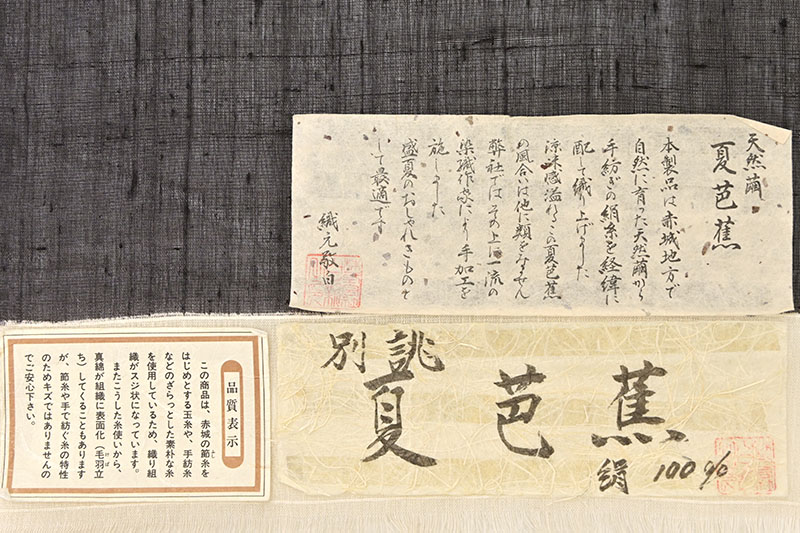 天然繭
夏芭蕉
本製品は赤城地方で
自然に育った天然繭から
手紡ぎの絹糸を経緯に
配して織り上げました
涼味感溢れるこの夏芭蕉
の風合いは他に類をみません
弊社ではその上に一流の
染織作家により手加工を
施しました
盛夏のおしゃれきものと
して最適です
織元敬白
別誂
夏芭蕉
絹100%
品質表示
この商品は、赤城の節糸を
はじめとする玉糸や、手紡糸
などのざらっとした素朴な糸
を使用しているため、織り組
織がスジ状になっています。
またこうした糸使いから、
真綿が組織に表面化(毛羽立
ち)してくることもあります
が、節糸や手で紡ぐ糸の特性
のためキズではありませんの
でご安心下さい。